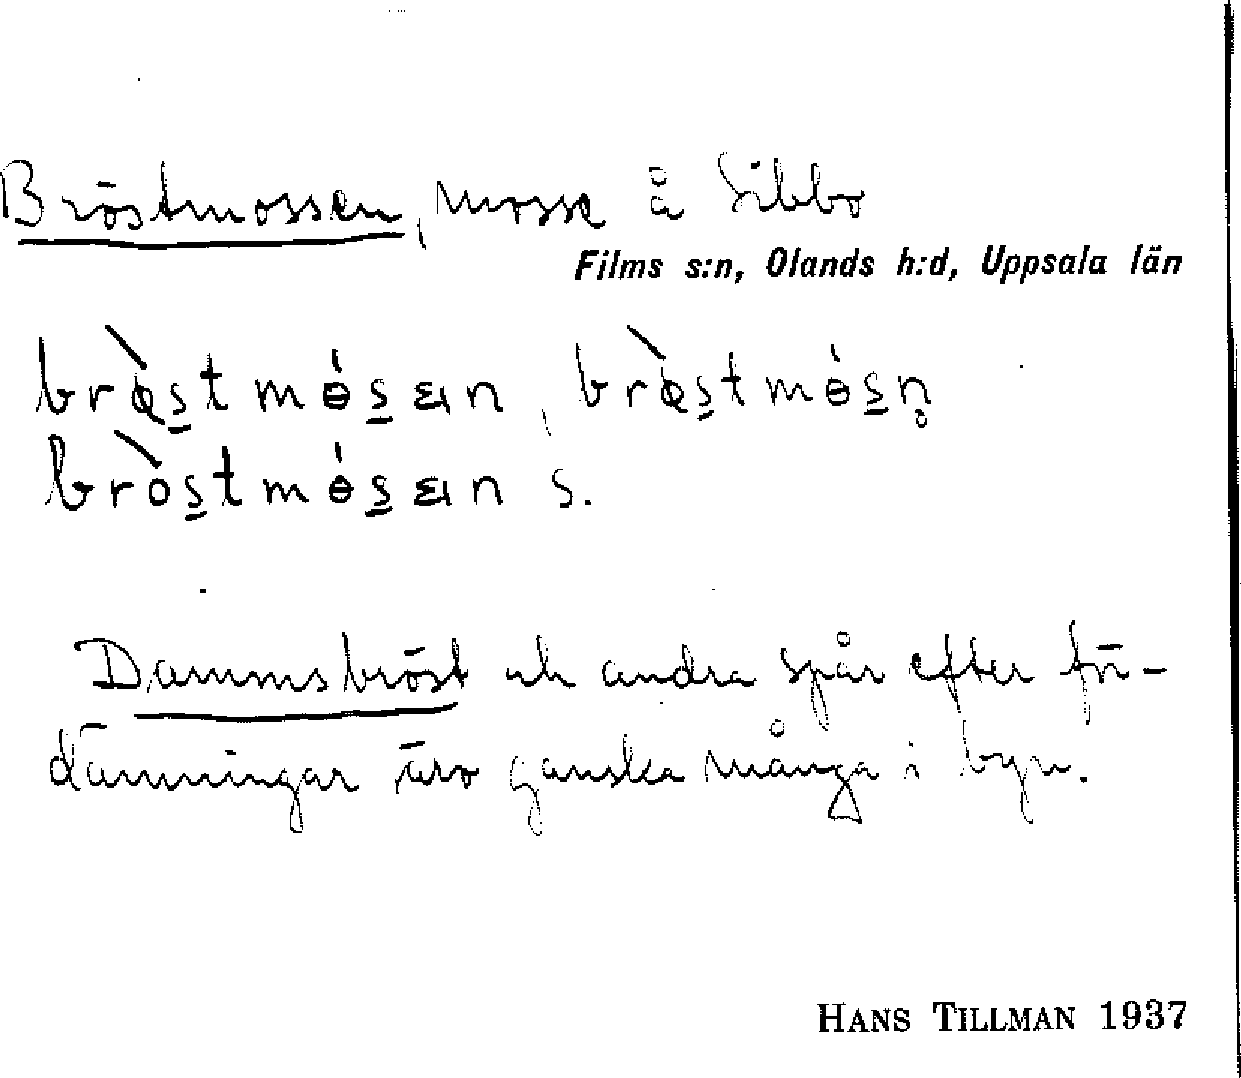 Bröstmossen, mosse å Sibbo
Films s:n, Olands h:d, Uppsala län
s.
Dammsbröst och andra spår efter för-
dämningar äro ganska många i byn.
HANS TILLMAN 1937